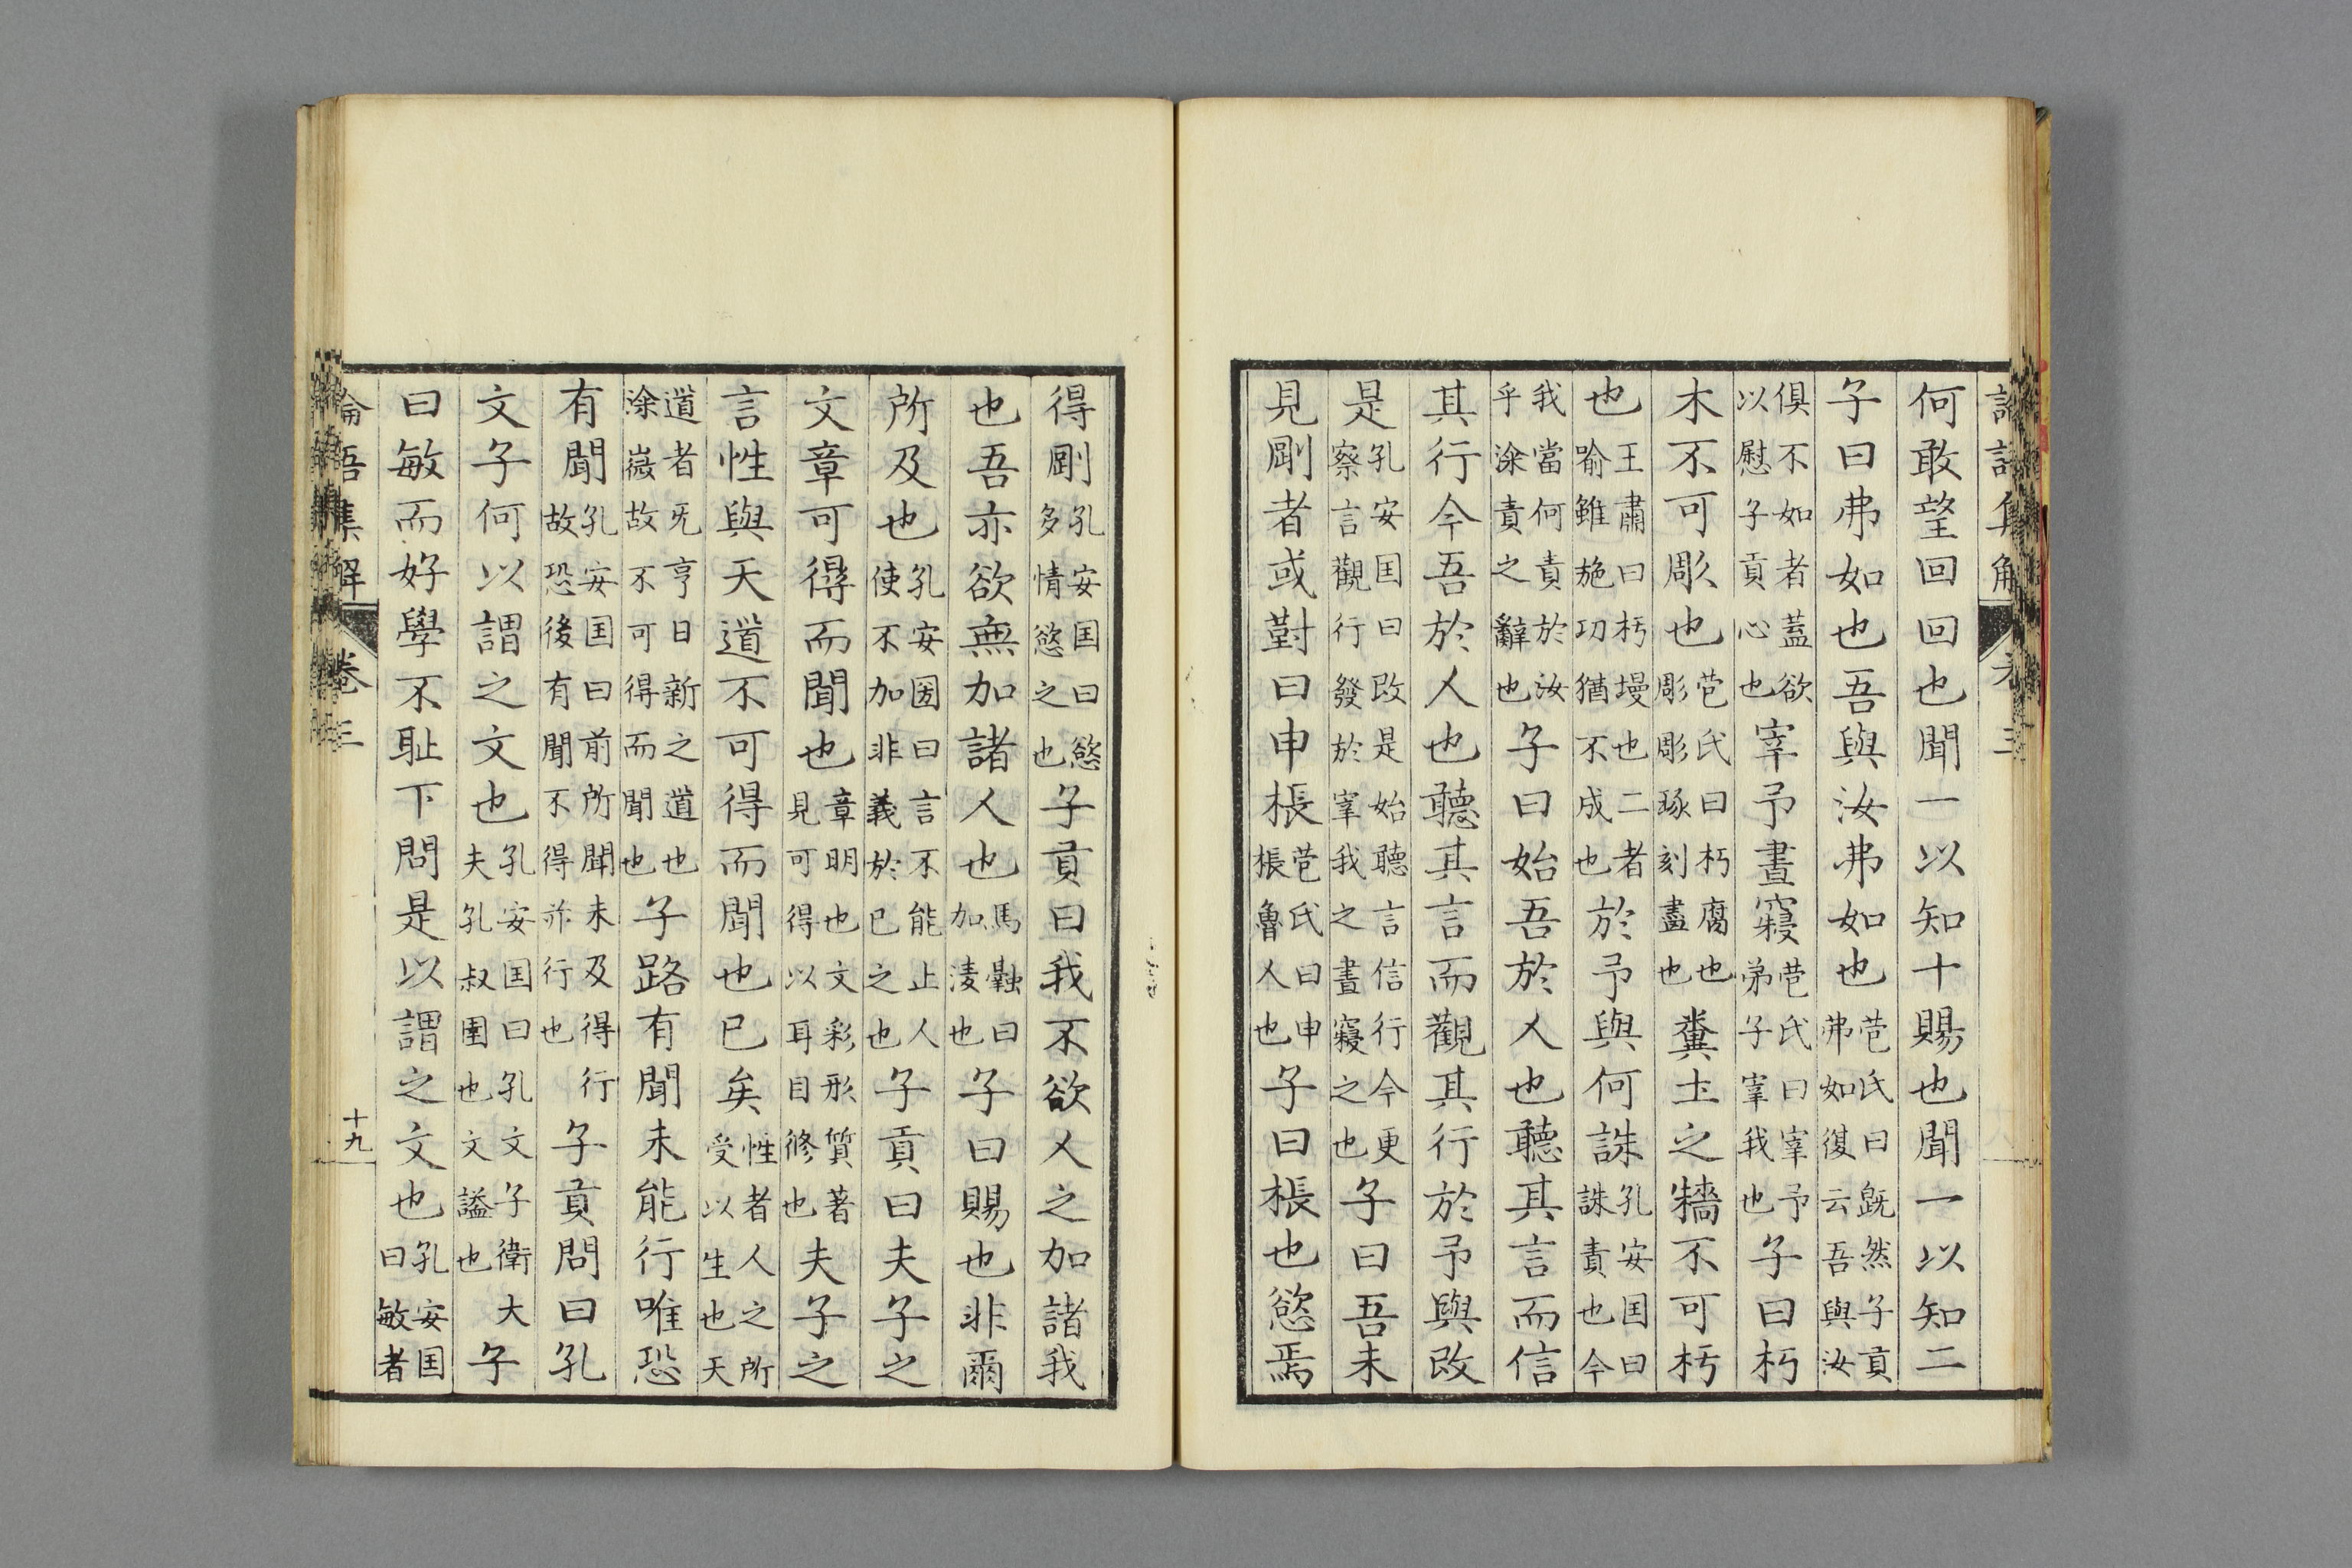 何敢望回回也聞一以知十賜也聞一以知二
子曰弗如也吾與汝弗如也苞氏曰既然子貢弗如復云吾與汝
俱不如者蓋欲以慰子貢心也宰予晝寢苞氏曰宰予弟子宰我也子曰朽
木不可彫也苞氏曰朽腐也彫彫琢刻盡也糞土之牆不可杇
也王肅曰杇墁也二者喻雖施功猶不成也於予與何誅孔安囯曰誅責也今
我當何責於汝乎深責之辭也子曰始吾於人也聽其言而信
其行今吾於人也聽其言而觀其行於予與改
是孔安囯曰改是始聽言信行今更察言觀行發於宰我之晝寢之也子曰吾未
見剛者或對曰申棖苞氏曰申棖魯人也子曰棖也慾焉
得剛孔安囯曰慾多情慾之也子貢曰我不欲人之加諸我
也吾亦欲無加諸人也馬融曰加淩也子曰賜也非爾
所及也孔安囶曰言不能止人使不加非義於己之也子貢曰夫子之
文章可得而聞也章明也文彩形質著見可得以耳目修也夫子之
言性與天道不可得而聞也已矣性者人之所受以生也天
道者元亨日新之道也深微故不可得而聞也子路有聞未能行唯恐
有聞孔安囯曰前所聞未及得行故恐後有聞不得亦行也子貢問曰孔
文子何以謂之文也孔安囯曰孔文子衛大夫孔叔圉也文謚也子
曰敏而好學不耻下問是以謂之文也孔安囯曰敏者
論語集解
卷三
十九